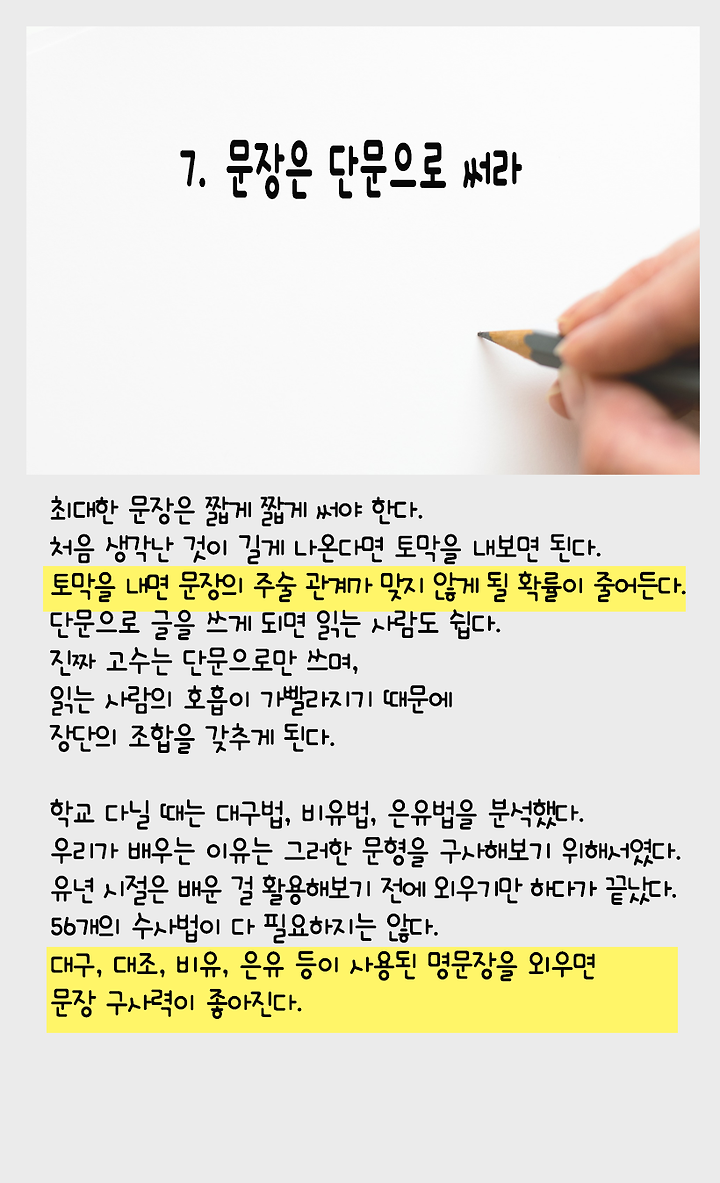 7. 문장은 단문으로 써라
최대한 문장은 짧게 짧게 써야 한다.
처음 생각난 것이 길게 나온다면 토막을 내보면 된다.
토막을 내면 문장의 주술 관계가 맞지 않게 될 확률이 줄어든다.
단문으로 글을 쓰게 되면 읽는 사람도 쉽다.
진짜 고수는 단문으로만 쓰며,
읽는 사람의 호흡이 가빨라지기 때문에
장단의 조합을 갖추게 된다.
학교 다닐 때는 대구법, 비유법, 은유법을 분석했다.
우리가 배우는 이유는 그러한 문형을 구사해보기 위해서였다.
유년 시절은 배운 걸 활용해보기 전에 외우기만 하다가 끝났다.
56개의 수사법이 다 필요하지는 않다.
대구, 대조, 비유, 은유 등이 사용된 명문장을 외우면
문장 구사력이 좋아진다.